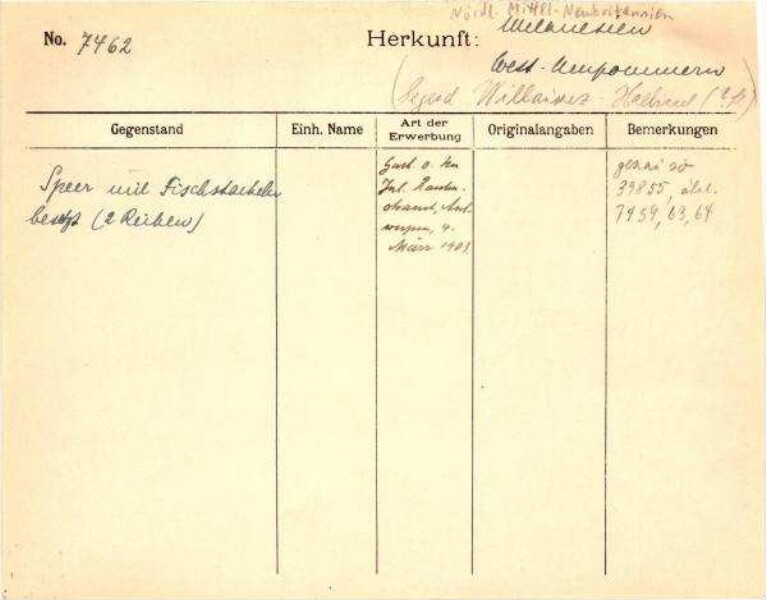 Nördl. Mittel-Neubritannien
No. 7462
Herkunft: Melanesien
West-Neupommern
(Gegend Willaumez-Halbinsel (?))
Gegenstand
Einh. Name
Art der Erwerbung
Originalangaben
Bemerkungen
Speer mit Fischstacheln
besetzt (2 Reihen)
Jul.
März 1901
genau so
39855, ähnl.
7459, 63, 64